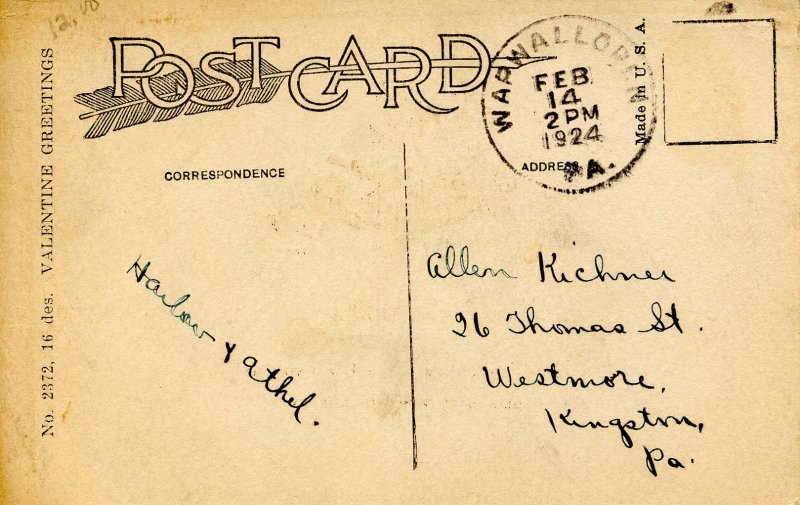 12.00
POST CARD
WAPWALLOPEN
FEB
14
2 PM
1924
PA.
Made in U. S. A.
No. 2372, 16 des. VALENTINE GREETINGS
CORRESPONDENCE
ADDRESS
Harlow & Athel.
Allen Kichner
26 Thomas St.
Westmore,
Kingston,
Pa.